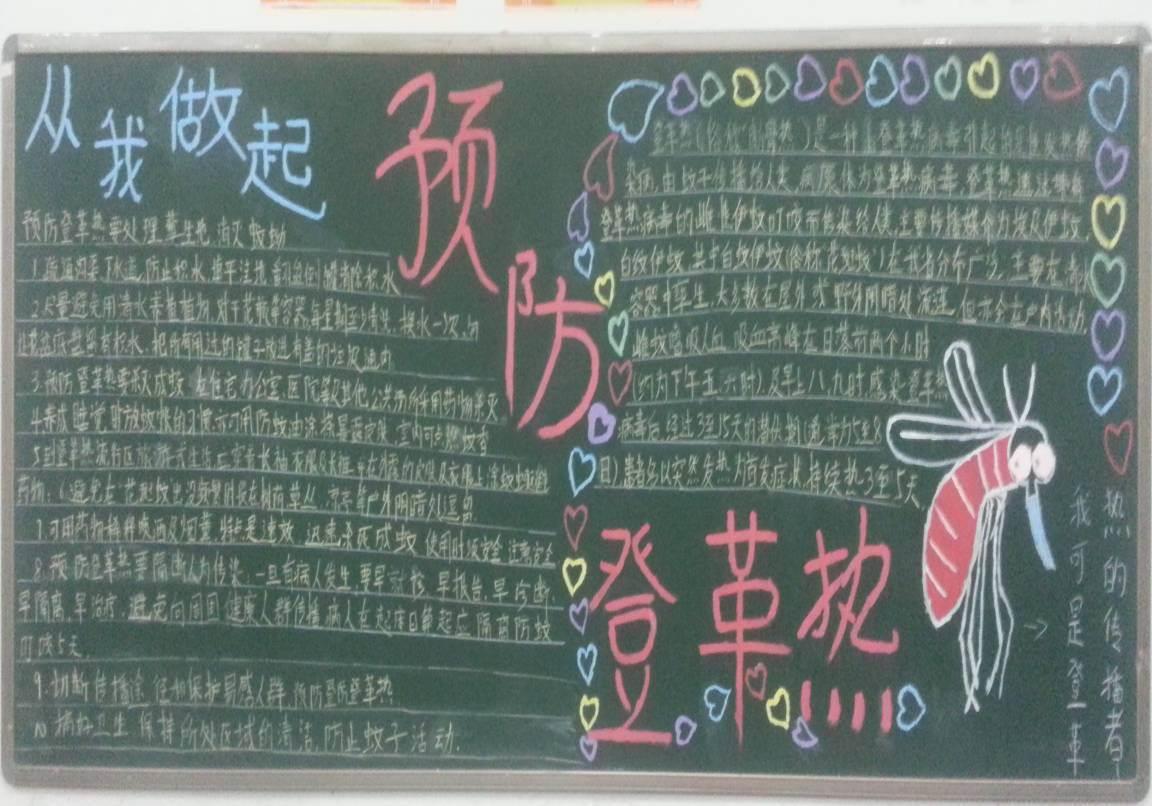 从我做起
预防
登革热
预防登革热要处理孳生地,消灭蚊幼
1.疏通沟渠下水道,防止积水
2.尽量避免用清水养植植物,对于花瓶等容器,每星期至少清洗、换水一次,勿
让花盆底盘留有积水,把所有用过的罐子放进有盖的垃圾
3.预防登革热要杀灭成蚊 在住宅办公室医院等及其他公共场所采用药物杀灭
4.养成睡觉时放蚊帐的习惯亦可用防蚊 室内可点燃蚊香
5.到登革热流行区旅游或生活 应穿着长袖衣服及长裤 并在外露的皮肤及衣服上涂蚊虫
药物。 避免在"花斑蚊出没频繁时段在树荫草丛、凉亭等户外阴暗处逗留
7.可用药物 特点是速效 迅速杀死成蚊 使用时须安全 注意安全
8.预防登革热要隔断人为传染,一旦有病人发生 要早 早报告,早诊断、
早隔离,早治疗。避免向周围健康人群传播 病人在起床日算起应隔离防蚊
叮咬5天。
9.切断传播途径和保护易感人群,预防登革热
10.搞好卫生 保持所处区域的清洁,防止蚊子活动.
登革热 是一种由登革热病毒引起的急性发热传
染病,由蚊子传播给人类,病原体为登革热病毒,登革热通过带有
登革热病毒的雌性伊蚊叮咬而传染给人类,主要传播媒介为埃及伊蚊
白纹伊蚊,其中白纹伊蚊(俗称花斑蚊)在我省分布广泛,主要在
容器中孳生,大多数在屋外或野外阴暗处流连,但亦会在户内活动
雌蚊嗜吸人血 吸血高峰在日落前两个小时
(约为下午五、六时)及早上八、九时,感染登革热
病毒后,经过3至15天的潜伏期(通常为5至8
日)患者多以突然发热为首发症状,持续热3至5天
我可是登革
热的传播者